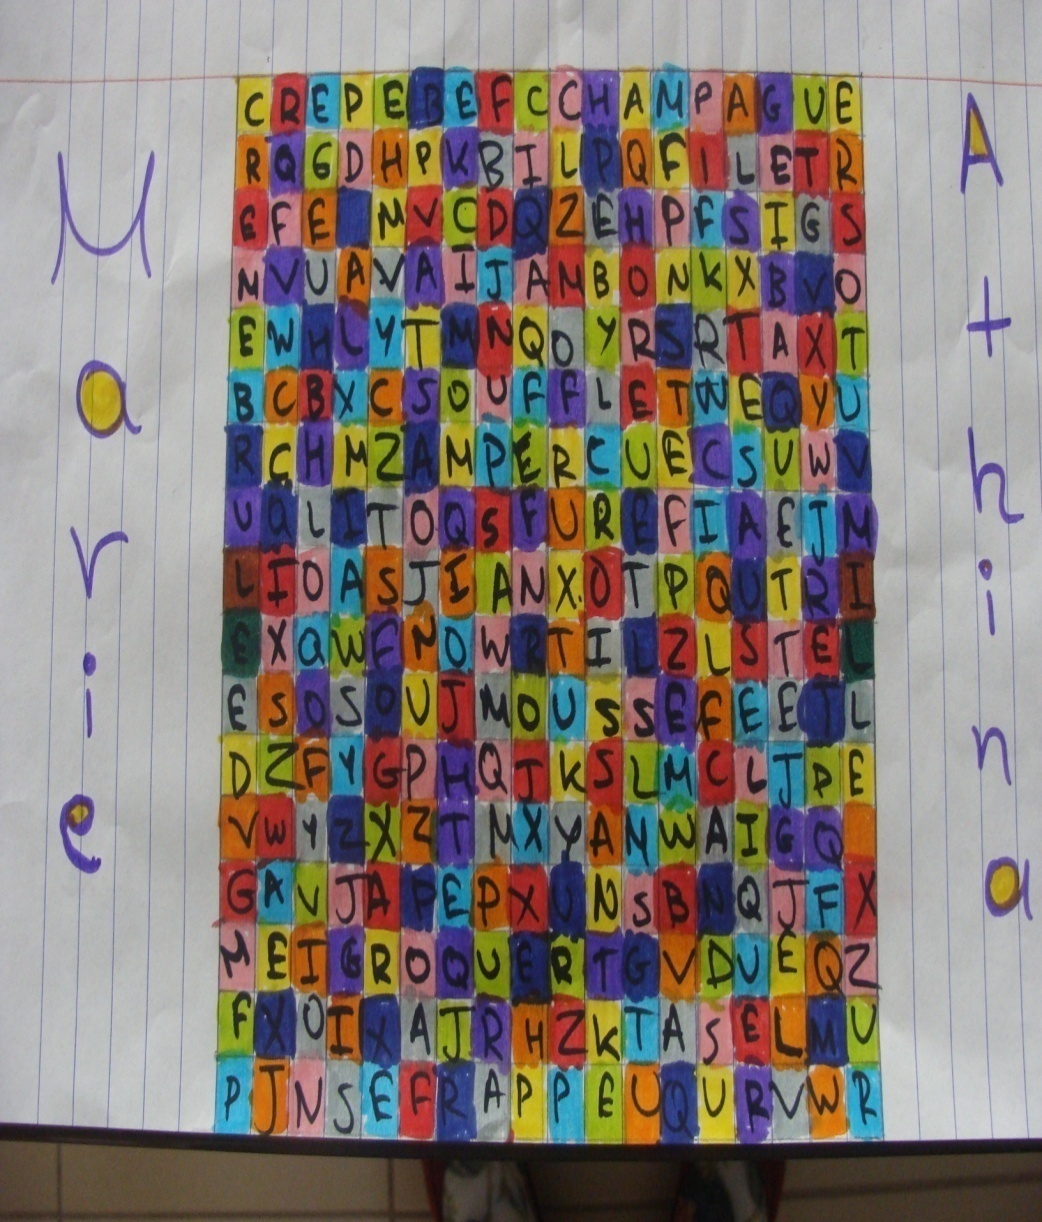 Marie
CREPEBEFCCHAMPAGUE
RQGDHPKBILPQFILETR
EFE MVCDQZEHPFSIGS
MVUAVAIJAMBONKXBVO
EWHLYTMNQOYRSRTAXT
BCBXCSOUFFLETWEQYU
RCHMZAMPERCUECSUWV
UQLITOQSFUREFIAEJM
LIOASJIANXOTPQUTRI
EXQWFNOWRTILZLSTEL
ESOSOUJMOUSSEFEETL
DZFYGPHQJKSLMCLJPE
VWYZXZTMXYANWAIGQ
GAVJAPEPXUNSBNQJFX
MEIGROQUERTGVDUEQZ
FXOIXAJRHZKTASELMU
PJNSEFRAPPEUQURVWR
Athina